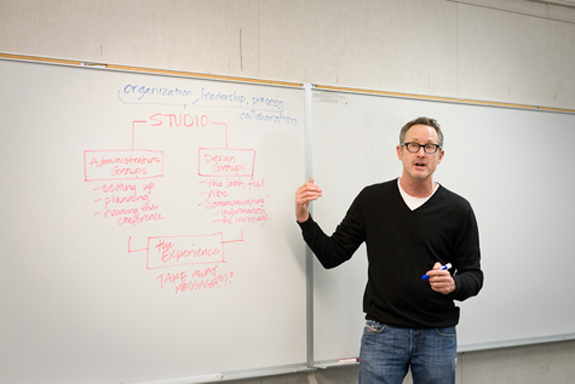 organization, leadership, process
collaboration
STUDIO
Administrative
Groups
- setting up
- planning
- running the
conference
Design
Groups
- the look, feel
- vibe
- "communicating"
- information
- the message
the
Experience
TAKE AWAY
MESSAGE(S)?